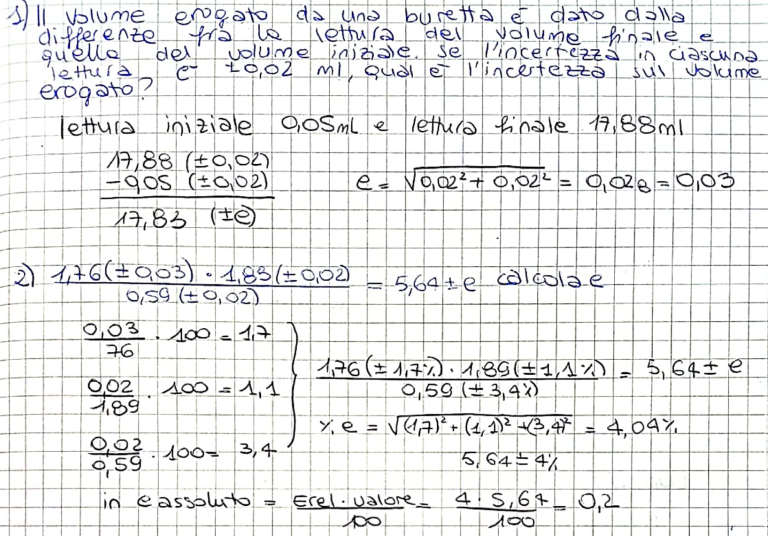 1) Il volume erogato da una buretta è dato dalla
differenze fra la lettura del volume finale e
quello del volume iniziale. Se l'incertezza in ciascuna
lettura è ±0,02 ml, qual è l'incertezza sul volume
erogato?
lettura iniziale 0,05mL e lettura finale 17,88ml
17,88 (±0,02)
-0,05 (±0,02)
e = √0,02² + 0,02² = 0,028 = 0,03
17,83 (±e)
2) 1,76(±0,03) · 1,83(±0,02) / 0,59 (±0,02) = 5,64 ± e calcola e
0,03 / 76 · 100 = 1,7
0,02 / 1,89 · 100 = 1,1
0,02 / 0,59 · 100 = 3,4
1,76 (±1,7%) · 1,89(±1,1%) / 0,59 (±3,4%) = 5,64 ± e
% e = √(1,7)² + (1,1)² + (3,4)² = 4,04%
5,64 ± 4%
in e assoluto = Erel · valore / 100 = 4 · 5,64 / 100 = 0,2